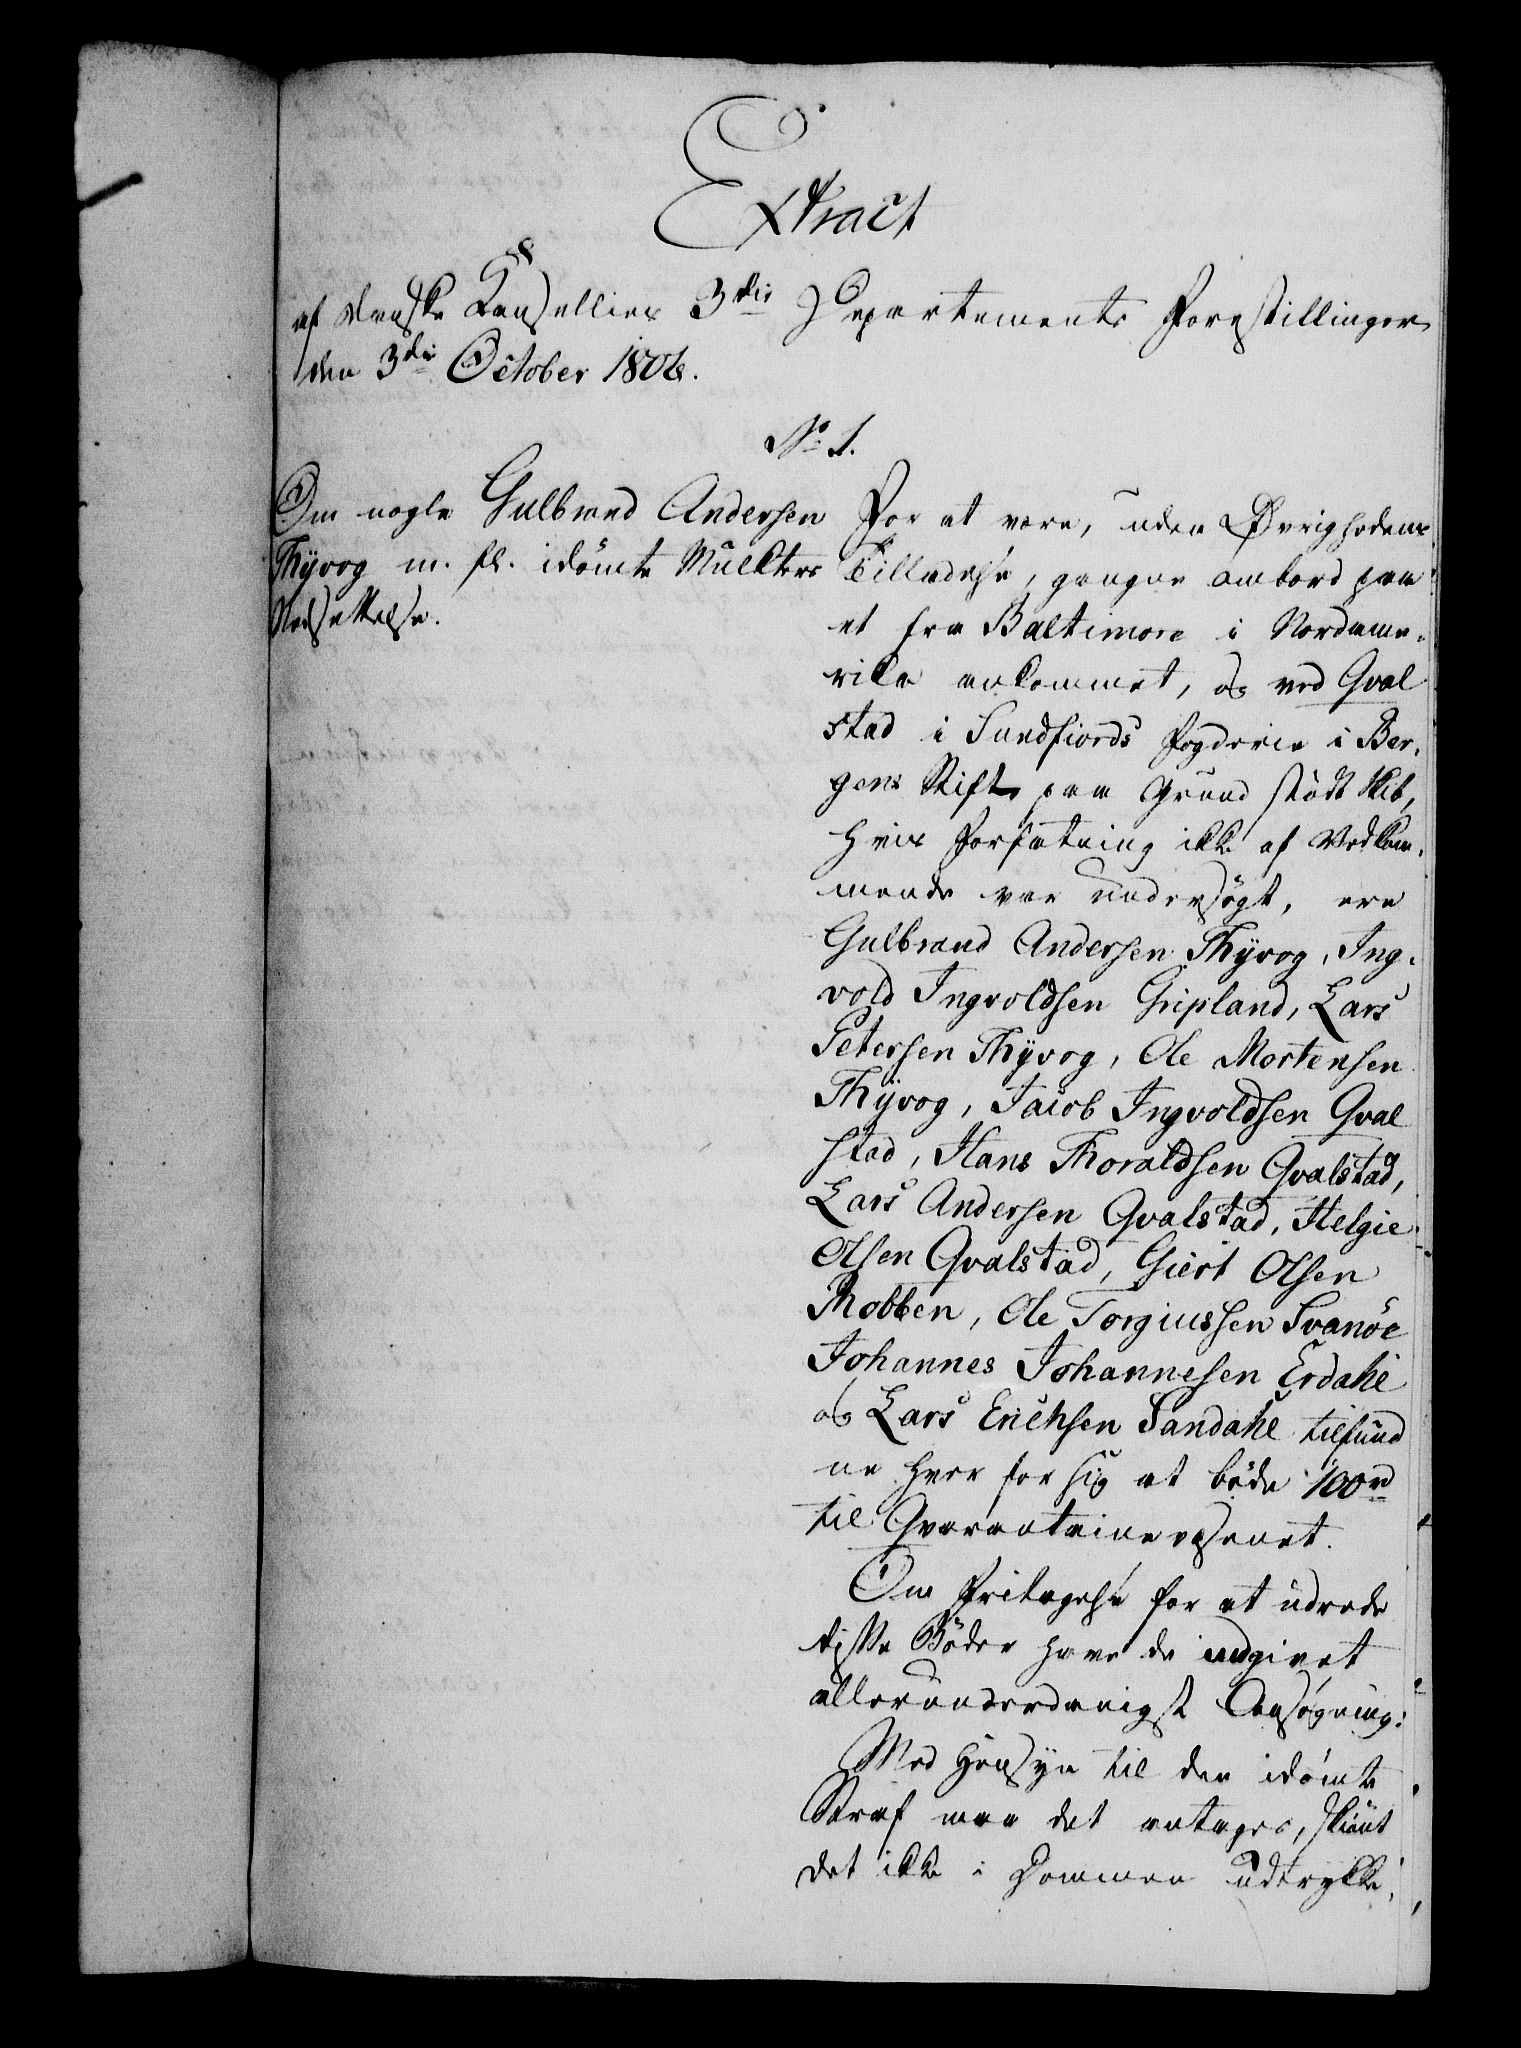 Extract
af danske Cancellies 3die Departements Forestillinger
den 3die October 1806.
No 1.
Om nogle Gulbrand Andersen
Thÿvog m. fl. idömte Mulkters
Nedsættelse.
For at være, uden Øvrighedens
Tilladelse, gangne ombord paa
et fra Baltimore i Nordame-
rika ankommet, og ved Qval
stad i Sundfiords Fogderie i Ber-
gens Stift paa Grund stödt Skib,
hvis Forfatning ikke af Vedkom-
mende var undersögt, ere
Gulbrand Andersen Thÿvog, Ing-
vold Ingvoldsen Gripland, Lars
Petersen Thÿvog, Ole Mortensen
Thÿvog, Jacob Ingvoldsen Qval
stad, Hans Thoraldsen Qvalstad,
Lars Andersen Qvalstad, Helgie
Olsen Qvalstad, Giert Olsen
Robben, Ole Torgiussen Svanöe
Johannes Johannesen Erdahl
og Lars Erichsen Sandahl tilfund
ne hver for sig at böde 100 rd
til Qvarantainevæsenet.
Om Fritagelse for at udrede
disse Böder have de indgivet
allerunderdanigst Ansögning:
Med Hensyn til den idömte
Straf maa det antages, skiönt
det ikke i Dommen udtrykke-